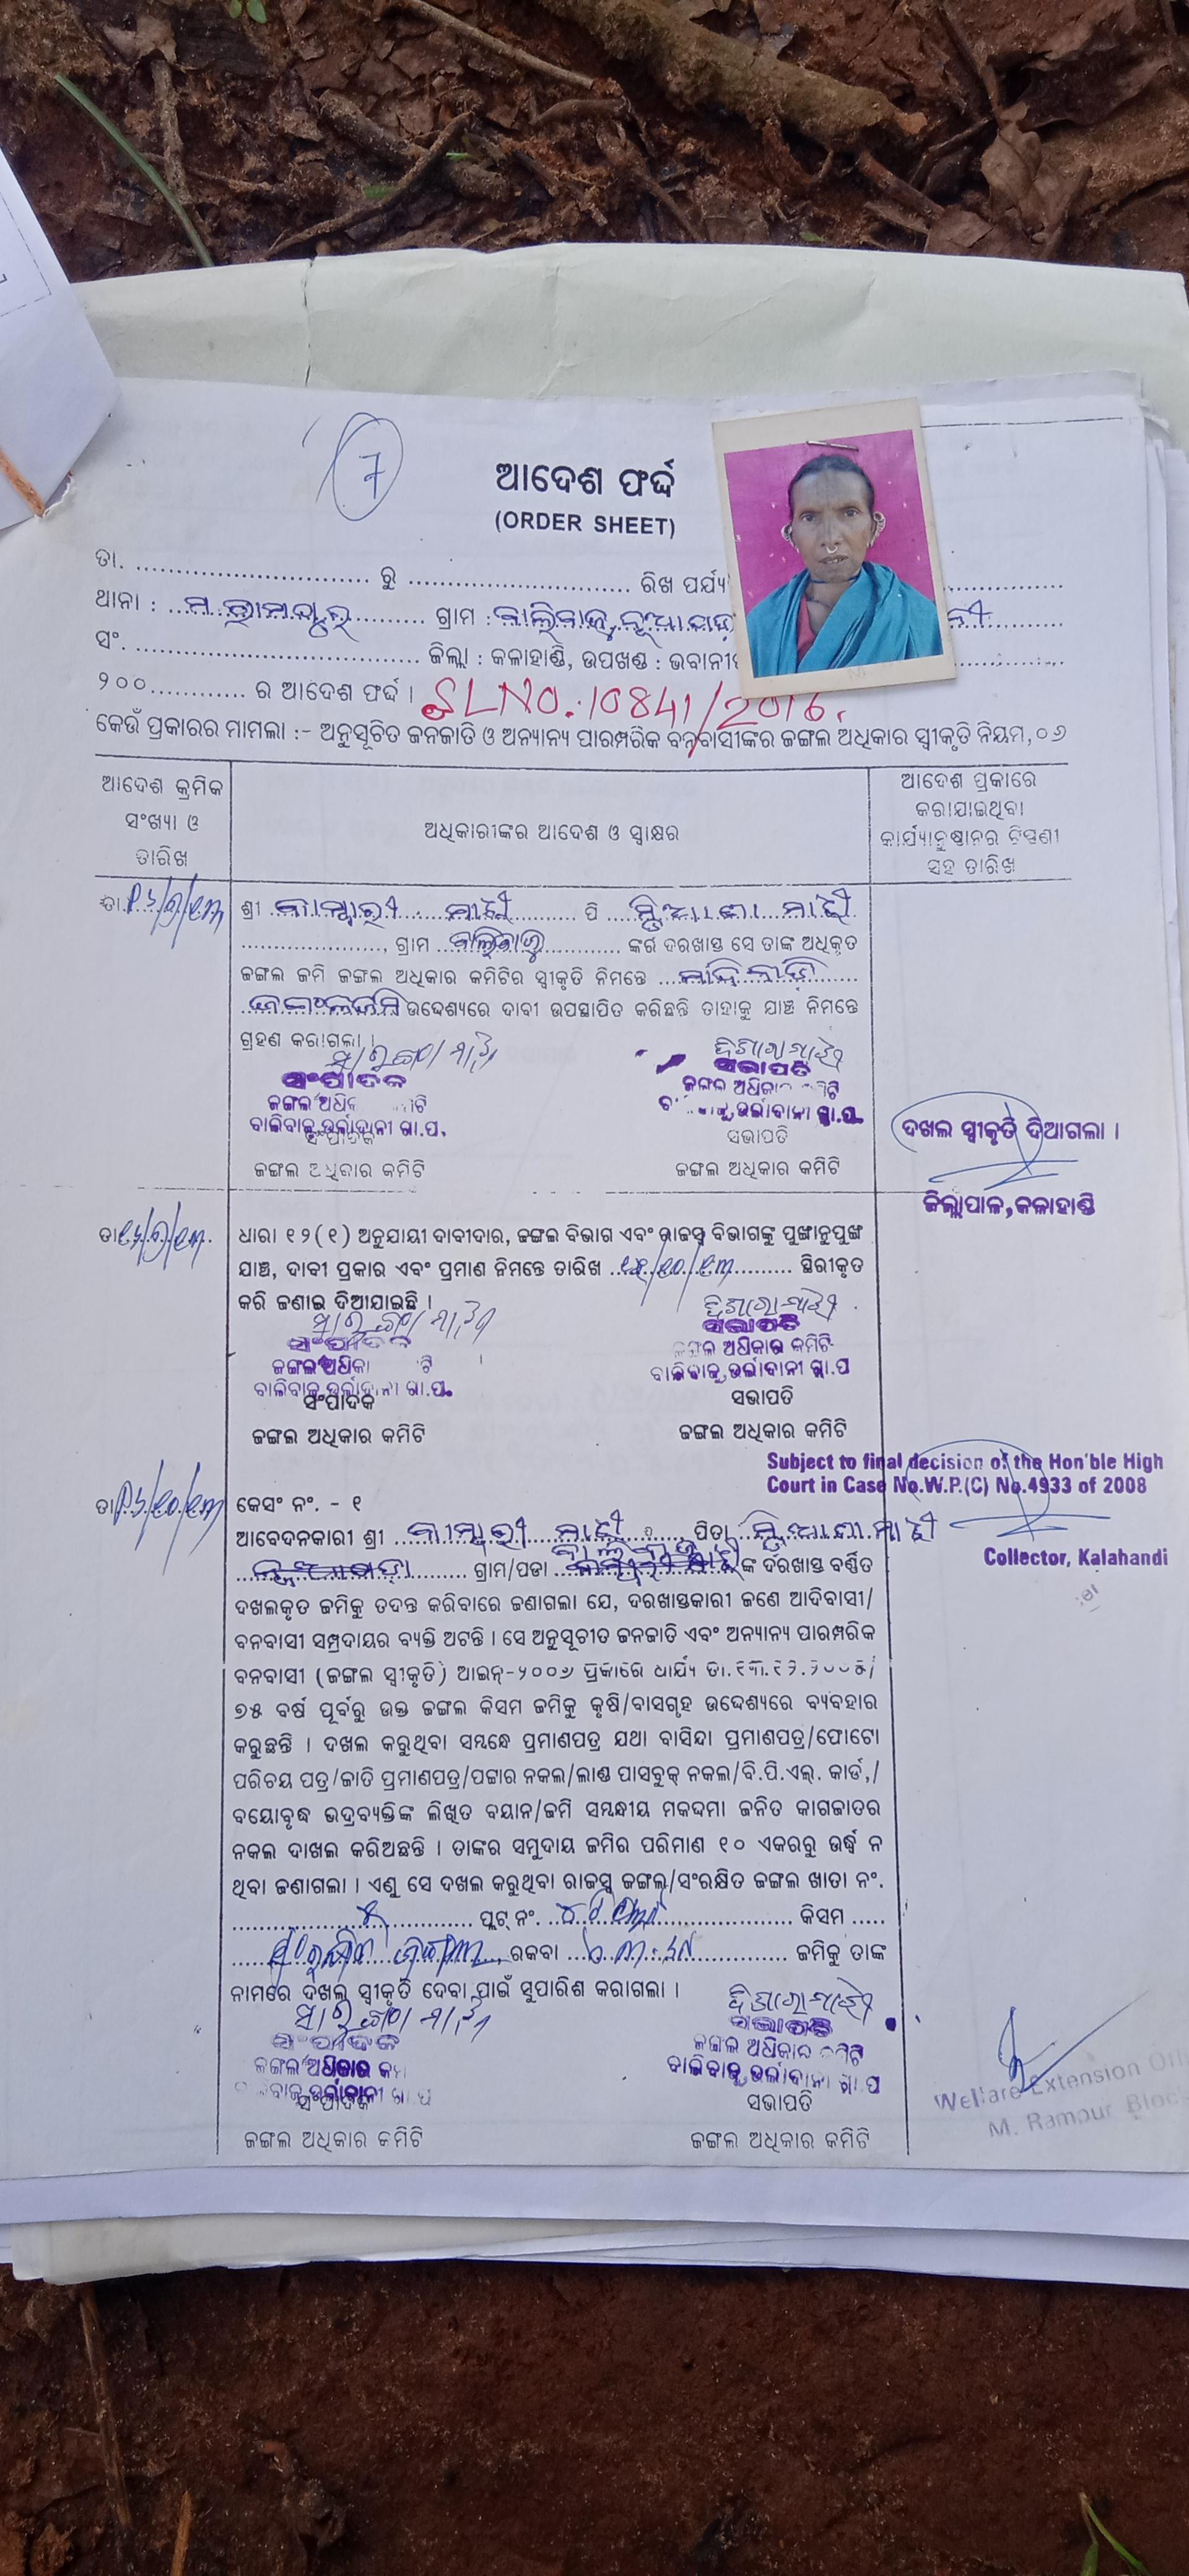 7
ଆଦେଶ ଫର୍ଦ୍ଦ
(ORDER SHEET)
ତା. ............................ ରୁ ............................ ରିଖ ପର୍ଯ୍ୟ
ଥାନା : ମ. ରାମପୁର ଗ୍ରାମ :
ସଂ. .................................... ଜିଲ୍ଲା : କଳାହାଣ୍ଡି, ଉପଖଣ୍ଡ : ଭବାନୀ
୨୦୦............ ର ଆଦେଶ ଫର୍ଦ୍ଦ । SL NO. 10841/2016.
କେଉଁ ପ୍ରକାରର ମାମଲା :- ଅନୁସୂଚିତ ଜନଜାତି ଓ ଅନ୍ୟାନ୍ୟ ପାରମ୍ପରିକ ବନବାସୀଙ୍କର ଜଙ୍ଗଲ ଅଧିକାର ସ୍ୱୀକୃତି ନିୟମ,୦୬
ଆଦେଶ କ୍ରମିକ ସଂଖ୍ୟା ଓ ତାରିଖ
ଅଧିକାରୀଙ୍କର ଆଦେଶ ଓ ସ୍ୱାକ୍ଷର
ଆଦେଶ ପ୍ରକାରେ କରାଯାଇଥିବା କାର୍ଯ୍ୟାନୁଷ୍ଠାନର ଟିପ୍ପଣୀ ସହ ତାରିଖ
ତା.
ଶ୍ରୀ ମାଝି ପି ମାଝି
, ଗ୍ରାମ ବାଲିବାଜୁ ଙ୍କର ଦରଖାସ୍ତ ସେ ତାଙ୍କ ଅଧିକୃତ
ଜଙ୍ଗଲ ଜମି ଜଙ୍ଗଲ ଅଧିକାର କମିଟିର ସ୍ୱୀକୃତି ନିମନ୍ତେ
ଉଦ୍ଦେଶ୍ୟରେ ଦାବୀ ଉପସ୍ଥାପିତ କରିଛନ୍ତି ତାହାକୁ ଯାଞ୍ଚ ନିମନ୍ତେ
ଗ୍ରହଣ କରାଗଲା ।
ସଂପାଦକ
ସଭାପତି
ଜଙ୍ଗଲ ଅଧିକାର କମିଟି
ବାଲିବାଜୁ,ଉର୍ଲାଦାନୀ ଗ୍ରା.ପ.
ସଂପାଦକ
ସଭାପତି
ଜଙ୍ଗଲ ଅଧିକାର କମିଟି
ଜଙ୍ଗଲ ଅଧିକାର କମିଟି
ଦଖଲ ସ୍ୱୀକୃତି ଦିଆଗଲା ।
ଜିଲ୍ଲାପାଳ,କଳାହାଣ୍ଡି
ତା.
ଧାରା ୧୨(୧) ଅନୁଯାୟୀ ଦାବୀଦାର, ଜଙ୍ଗଲ ବିଭାଗ ଏବଂ ରାଜସ୍ୱ ବିଭାଗଙ୍କୁ ପୁଙ୍ଖାନୁପୁଙ୍ଖ
ଯାଞ୍ଚ, ଦାବୀ ପ୍ରକାର ଏବଂ ପ୍ରମାଣ ନିମନ୍ତେ ତାରିଖ ସ୍ଥିରୀକୃତ
କରି ଜଣାଇ ଦିଆଯାଇଛି ।
ସଂପାଦକ
ସଭାପତି
ଜଙ୍ଗଲ ଅଧିକାର କମିଟି
ବାଲିବାଜୁ,ଉର୍ଲାଦାନୀ ଗ୍ରା.ପ
ସଂପାଦକ
ସଭାପତି
ଜଙ୍ଗଲ ଅଧିକାର କମିଟି
ଜଙ୍ଗଲ ଅଧିକାର କମିଟି
Subject to final decision of the Hon'ble High
Court in Case No.W.P.(C) No.4933 of 2008
Collector, Kalahandi
ତା
କେସଂ ନଂ. - ୧
ଆବେଦନକାରୀ ଶ୍ରୀ ମାଝି ପିତା ମାଝି
ଗ୍ରାମ/ପଡା ଙ୍କ ଦରଖାସ୍ତ ବର୍ଣ୍ଣିତ
ଦଖଲକୃତ ଜମିକୁ ତଦନ୍ତ କରିବାରେ ଜଣାଗଲା ଯେ, ଦରଖାସ୍ତକାରୀ ଜଣେ ଆଦିବାସୀ/
ବନବାସୀ ସମ୍ପ୍ରଦାୟର ବ୍ୟକ୍ତି ଅଟନ୍ତି । ସେ ଅନୁସୂଚୀତ ଜନଜାତି ଏବଂ ଅନ୍ୟାନ୍ୟ ପାରମ୍ପରିକ
ବନବାସୀ (ଜଙ୍ଗଲ ସ୍ୱୀକୃତି) ଆଇନ୍-୨୦୦୬ ପ୍ରକାରେ ଧାର୍ଯ୍ୟ ତା.୧୩.୧୨.୨୦୦୫/
୭୫ ବର୍ଷ ପୂର୍ବରୁ ଉକ୍ତ ଜଙ୍ଗଲ କିସମ ଜମିକୁ କୃଷି/ବାସଗୃହ ଉଦ୍ଦେଶ୍ୟରେ ବ୍ୟବହାର
କରୁଛନ୍ତି । ଦଖଲ କରୁଥିବା ସମ୍ବନ୍ଧେ ପ୍ରମାଣପତ୍ର ଯଥା ବାସିନ୍ଦା ପ୍ରମାଣପତ୍ର/ଫୋଟୋ
ପରିଚୟ ପତ୍ର/ଜାତି ପ୍ରମାଣପତ୍ର/ପଟ୍ଟାର ନକଲ/ଲାଣ୍ଡ ପାସବୁକ୍ ନକଲ/ବି.ପି.ଏଲ୍. କାର୍ଡ,/
ବୟୋବୃଦ୍ଧ ଭଦ୍ରବ୍ୟକ୍ତିଙ୍କ ଲିଖିତ ବୟାନ/ଜମି ସମ୍ବନ୍ଧୀୟ ମକଦ୍ଦମା ଜନିତ କାଗଜାତର
ନକଲ ଦାଖଲ କରିଅଛନ୍ତି । ତାଙ୍କର ସମୁଦାୟ ଜମିର ପରିମାଣ ୧୦ ଏକରରୁ ଉର୍ଦ୍ଧ୍ୱ ନ
ଥିବା ଜଣାଗଲା । ଏଣୁ ସେ ଦଖଲ କରୁଥିବା ରାଜସ୍ୱ ଜଙ୍ଗଲ/ସଂରକ୍ଷିତ ଜଙ୍ଗଲ ଖାତା ନଂ.
ପ୍ଲଟ୍ ନଂ. କିସମ .....
ରକବା ଜମିକୁ ତାଙ୍କ
ନାମରେ ଦଖଲ ସ୍ୱୀକୃତି ଦେବା ପାଇଁ ସୁପାରିଶ କରାଗଲା ।
ସଂପାଦକ
ସଭାପତି
ଜଙ୍ଗଲ ଅଧିକାର କମିଟି
ବାଲିବାଜୁ,ଉର୍ଲାଦାନୀ ଗ୍ରା.ପ
ସଂପାଦକ
ସଭାପତି
ଜଙ୍ଗଲ ଅଧିକାର କମିଟି
ଜଙ୍ଗଲ ଅଧିକାର କମିଟି
Welfare Extension
M. Rampur Block